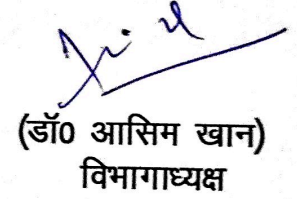 (डॉ0 आसिम खान)
विभागाध्यक्ष